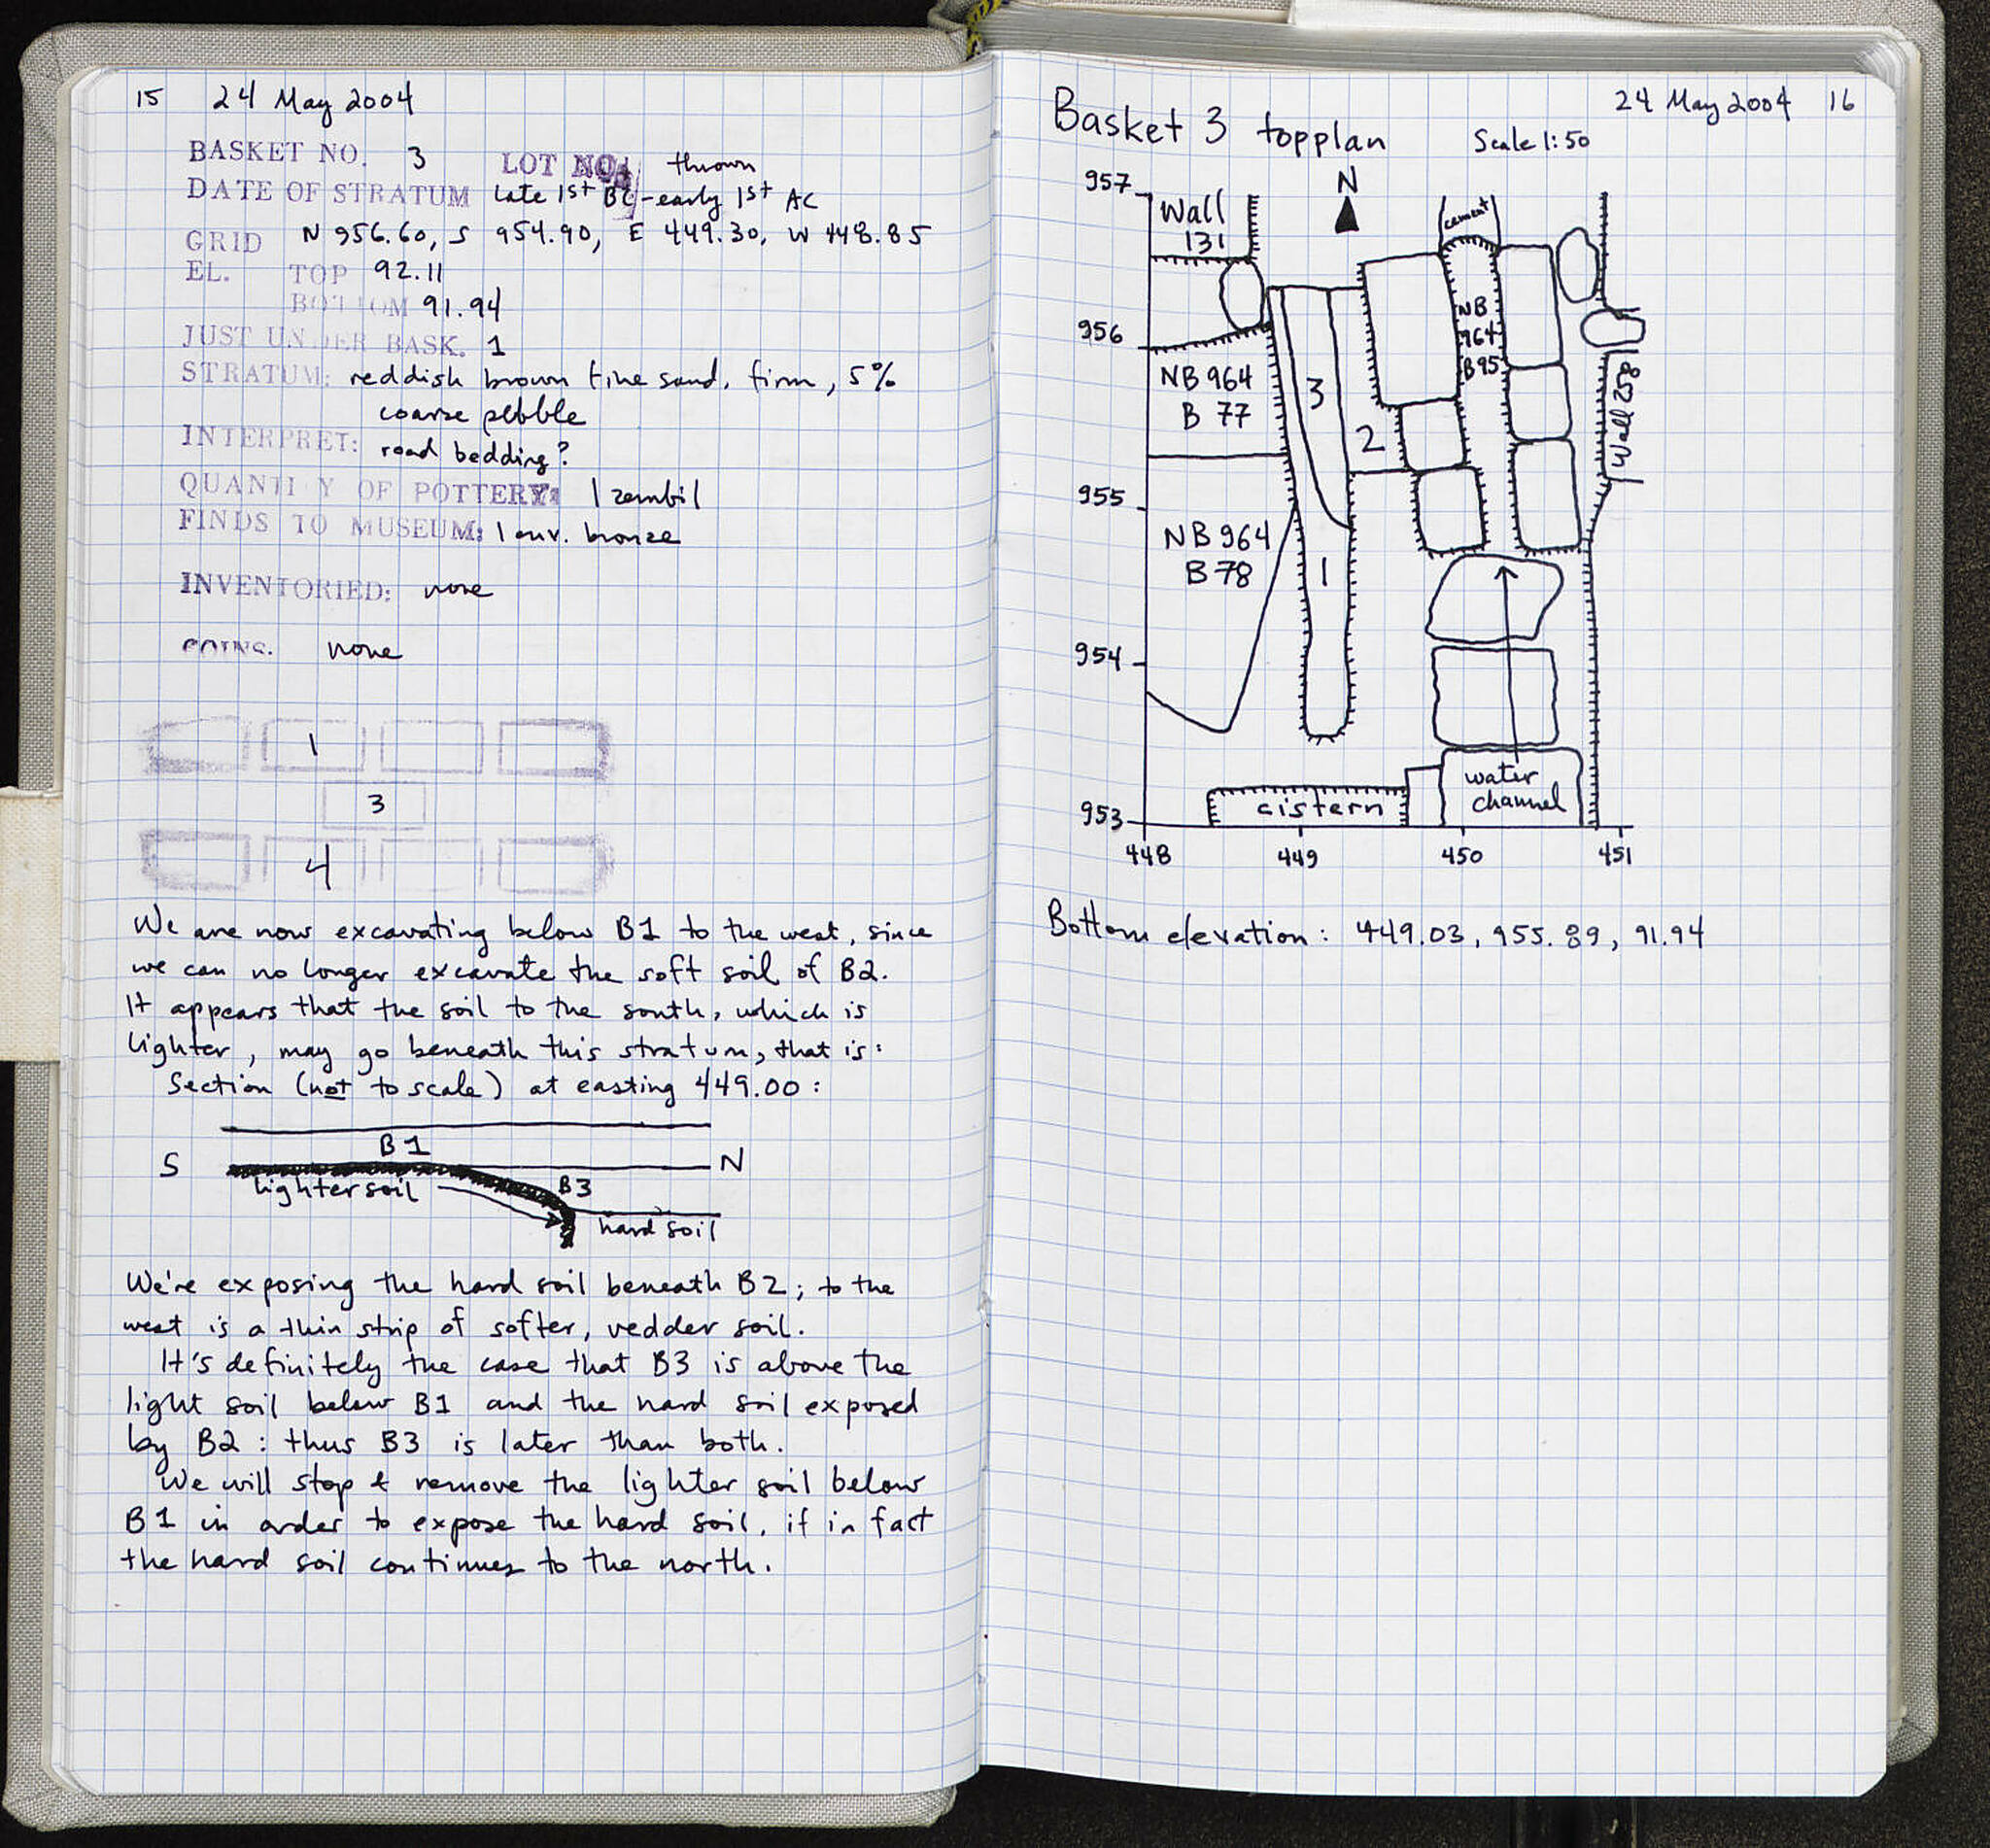 15 24 May 2004
BASKET NO. 3 LOT NO. thrown
DATE OF STRATUM late 1st BC - early 1st AC
GRID N 956.60, S 954.90, E 449.30, W 448.85
EL. TOP 92.11
BOTTOM 91.94
JUST UNDER BASK. 1
STRATUM: reddish brown fine sand, firm, 5%
coarse pebble
INTERPRET: road bedding?
QUANTITY OF POTTERY: 1 zembil
FINDS TO MUSEUM: 1 env. bronze
INVENTORIED: none
COINS. none
1
3
4
We are now excavating below B1 to the west, since
we can no longer excavate the soft soil of B2.
It appears that the soil to the south, which is
lighter, may go beneath this stratum, that is:
Section (not to scale) at easting 449.00:
B1
S N
lighter soil B3
hard soil
We're exposing the hard soil beneath B2; to the
west is a thin strip of softer, redder soil.
It's definitely the case that B3 is above the
light soil below B1 and the hard soil exposed
by B2: thus B3 is later than both.
We will stop & remove the lighter soil below
B1 in order to expose the hard soil, if in fact
the hard soil continues to the north.
24 May 2004 16
Basket 3 topplan Scale 1:50
N
957
Wall
131
cement
956
NB
964
B95
NB 964
B 77
3
2
Wall 758
955
NB 964
B 78
1
954
water
channel
cistern
953
448 449 450 451
Bottom elevation: 449.03, 955.89, 91.94